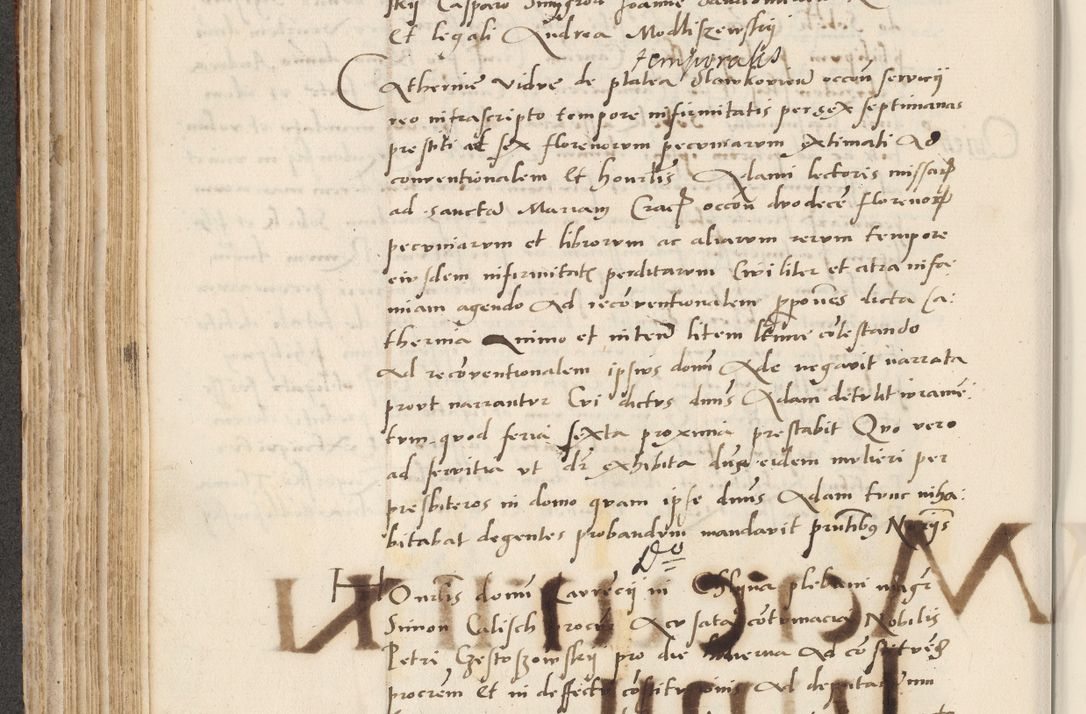 Et legali Andrea Modliszewskij
temporalis
Catherine vidue de platea Slawkovien occon servicij
reo infrascripto tempore infirmitatis per sex septimanas
prestiti ac sex florenorum pecuniarum extimati Ad
conventionalem Et honrlis Adami lectoris missarum
ad sanctam Mariam Crac occon duodecem florenorum
pecuniarum et librorum ac aliarum rerum tempore
eiusdem infirmitatis perditarum Cui liter et citra infa
miam agendo Ad reconventionalem proponens dicta Ca
therina Animo et inten litem contestando
Ad reconventionalem ipsius domini Ade negavit narrata
prout narrantur Cui dictus dnus Adam detulit iurame
tum quod feria sexta proxima prestabit Quo vero
ad servitia ut dr exhibita eidem mulieri per
presbiteros in domo quam ipse dnus Adam tunc inha
bitabat degentes probandum mandavit
Honrlis domini in plebani magr
Simon Calisch procur Accusata contumacia Nobilis
Petri pro die hodierna Ad constituend
procrem Et in deffectu constitutionis Ad